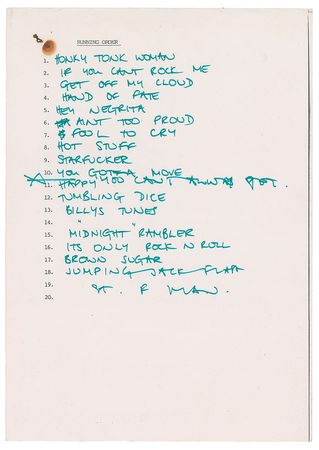 RUNNING ORDER
1. HONKY TONK WOMAN
2. IF YOU CANT ROCK ME
3. GET OFF MY CLOUD
4. HAND OF FATE
5. HEY NEGRITA
6. AINT TOO PROUD
7. FOOL TO CRY
8. HOT STUFF
9. STARFUCKER
10. YOU GOTTA MOVE
11. HAPPY YOU CAN'T ALWAYS GET.
12. TUMBLING DICE
13. BILLYS TUNES
14. "
15. MIDNIGHT RAMBLER
16. ITS ONLY ROCK N ROLL
17. BROWN SUGAR
18. JUMPING JACK FLASH
19. ST. F MAN.
20.